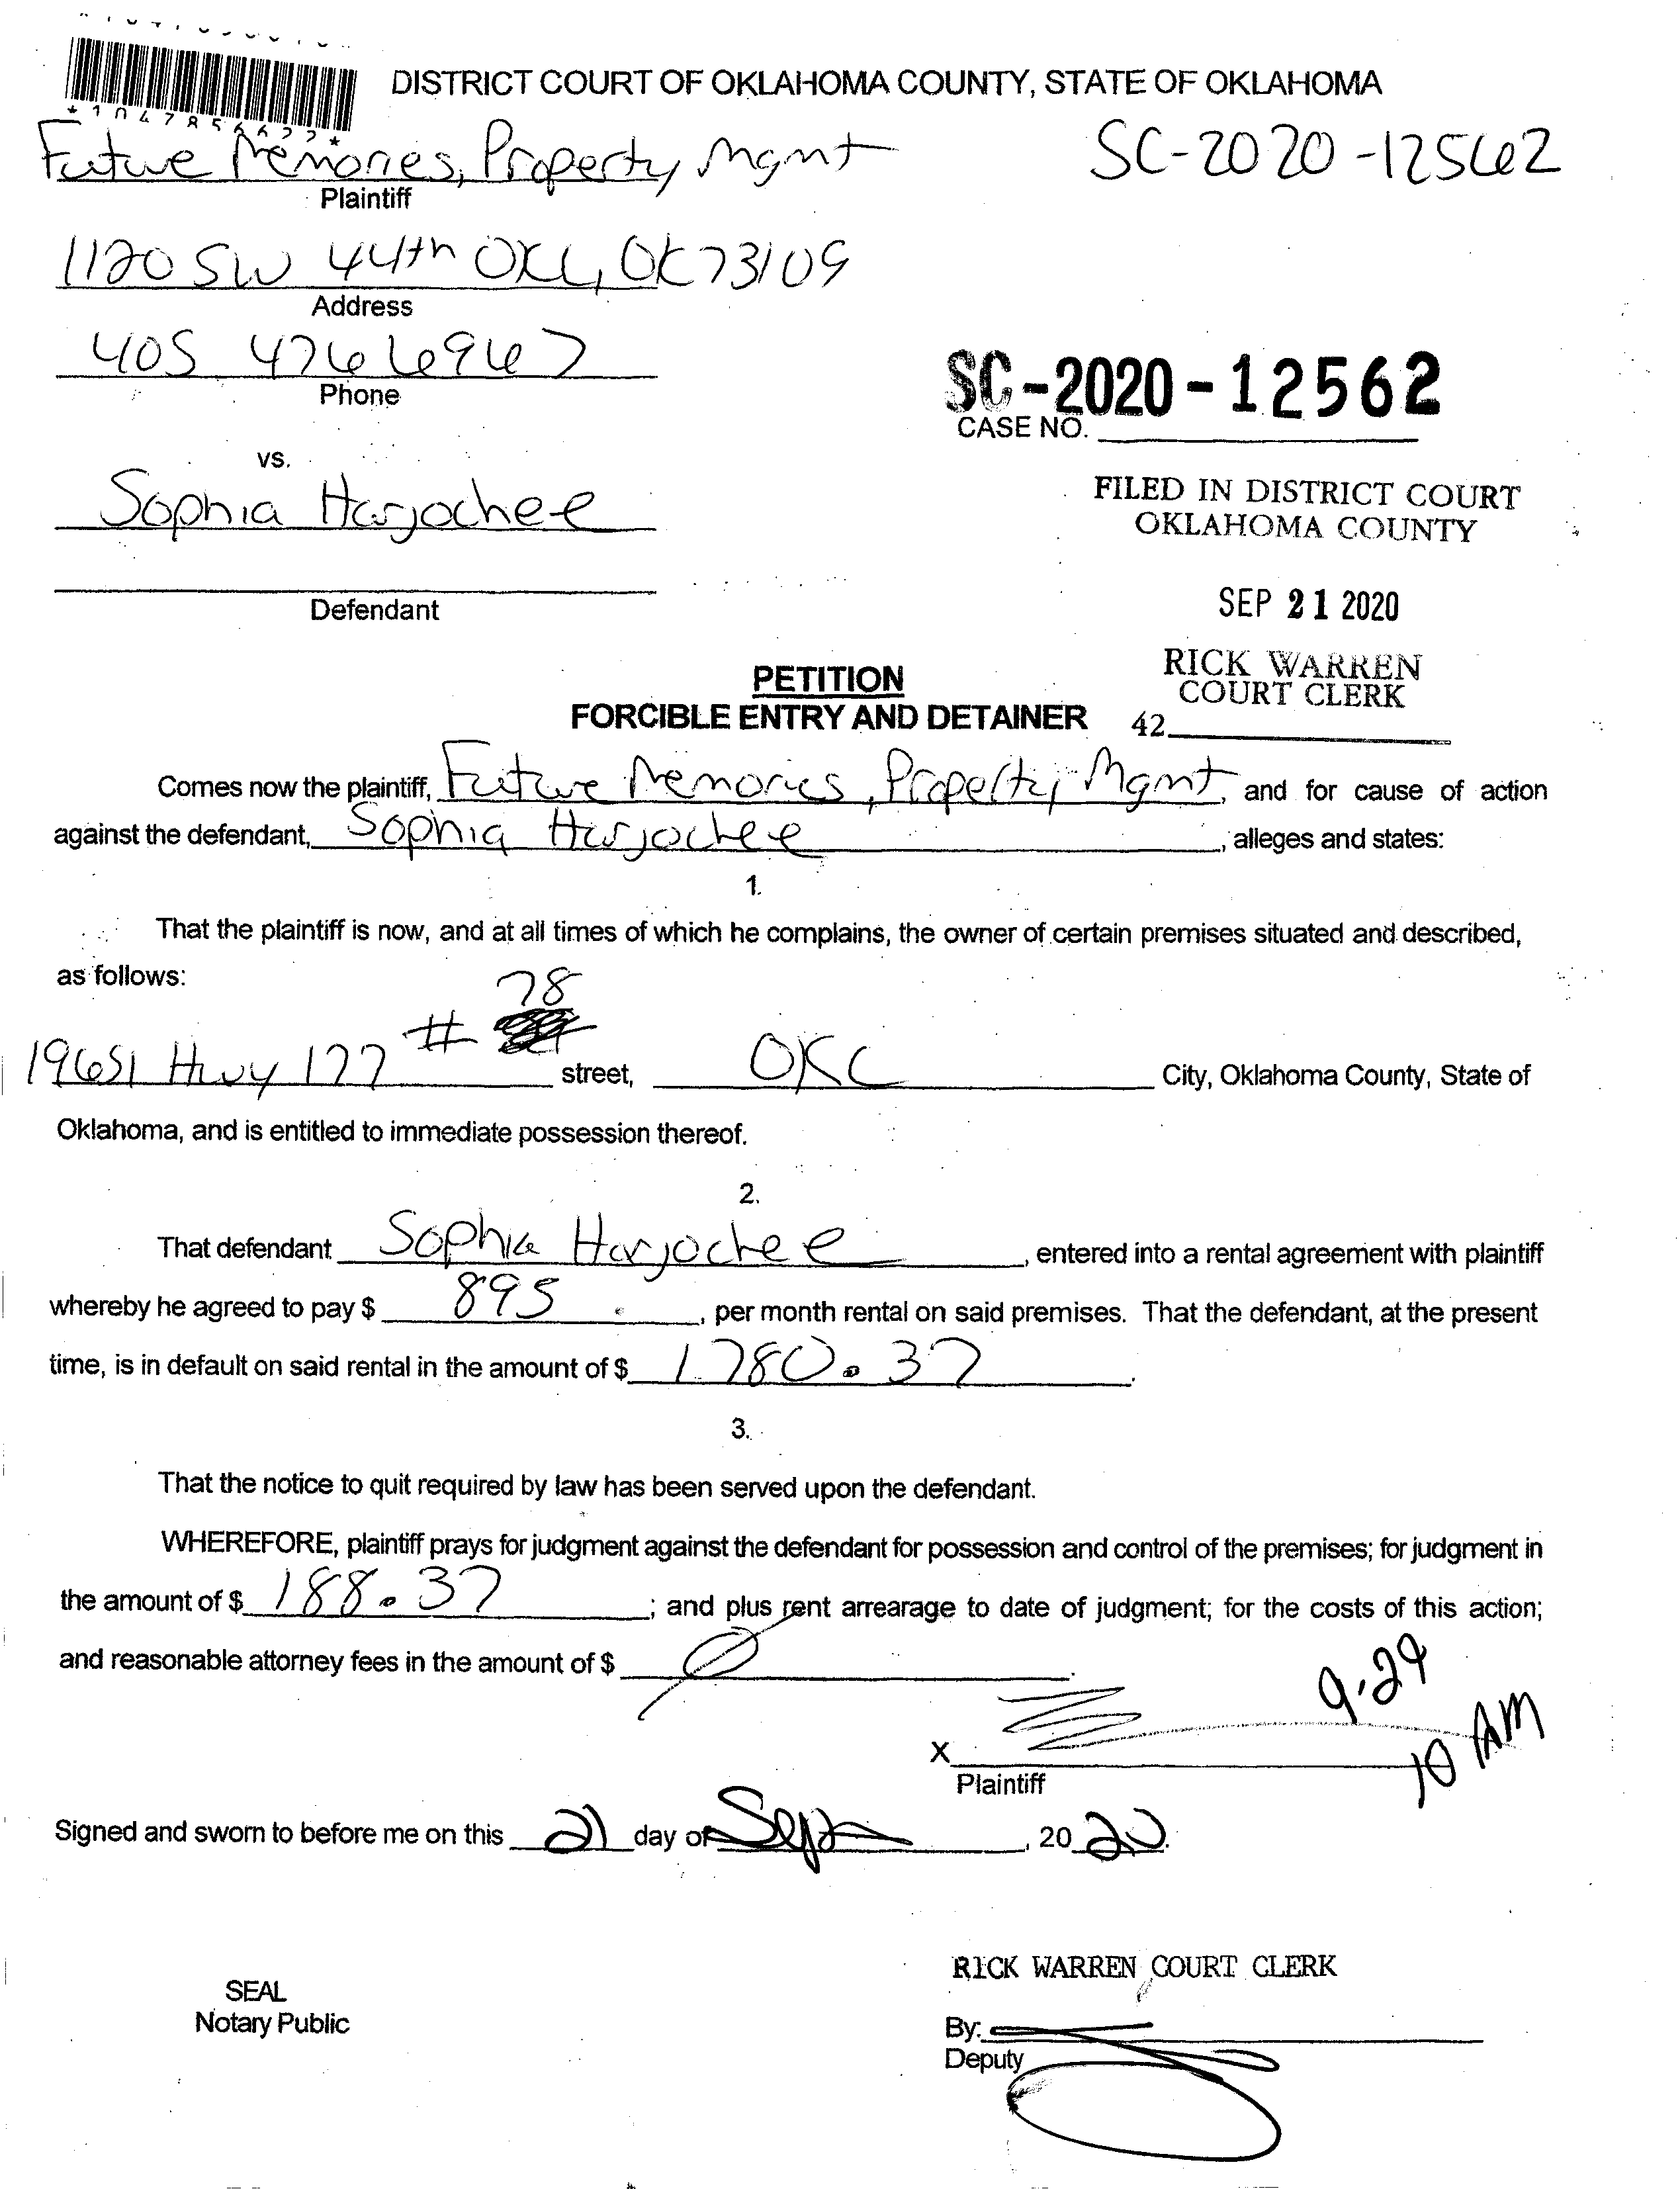 DISTRICT COURT OF OKLAHOMA COUNTY, STATE OF OKLAHOMA
*1047856622*
Future Memories, Property Mgmt
SC-2020-12562
Plaintiff
1120 SW 44th OKC, OK 73109
Address
405 476 6967
Phone
SC-2020-12562
CASE NO.
vs.
Sophia Harjochee
FILED IN DISTRICT COURT
OKLAHOMA COUNTY
Defendant
SEP 21 2020
RICK WARREN
COURT CLERK
42
PETITION
FORCIBLE ENTRY AND DETAINER
Comes now the plaintiff, Future Memories, Property Mgmt, and for cause of action
against the defendant, Sophia Harjochee, alleges and states:
1.
That the plaintiff is now, and at all times of which he complains, the owner of certain premises situated and described,
as follows:
78
19651 Hwy 177 # street, OKC City, Oklahoma County, State of
Oklahoma, and is entitled to immediate possession thereof.
2.
That defendant Sophia Harjochee, entered into a rental agreement with plaintiff
whereby he agreed to pay $ 895., per month rental on said premises. That the defendant, at the present
time, is in default on said rental in the amount of $ 1780.37.
3.
That the notice to quit required by law has been served upon the defendant.
WHEREFORE, plaintiff prays for judgment against the defendant for possession and control of the premises; for judgment in
the amount of $ 188.37; and plus rent arrearage to date of judgment; for the costs of this action;
and reasonable attorney fees in the amount of $ 0.
9.29
10 AM
X
Plaintiff
Signed and sworn to before me on this 21 day of Sept, 2020.
RICK WARREN COURT CLERK
SEAL
Notary Public
By:
Deputy